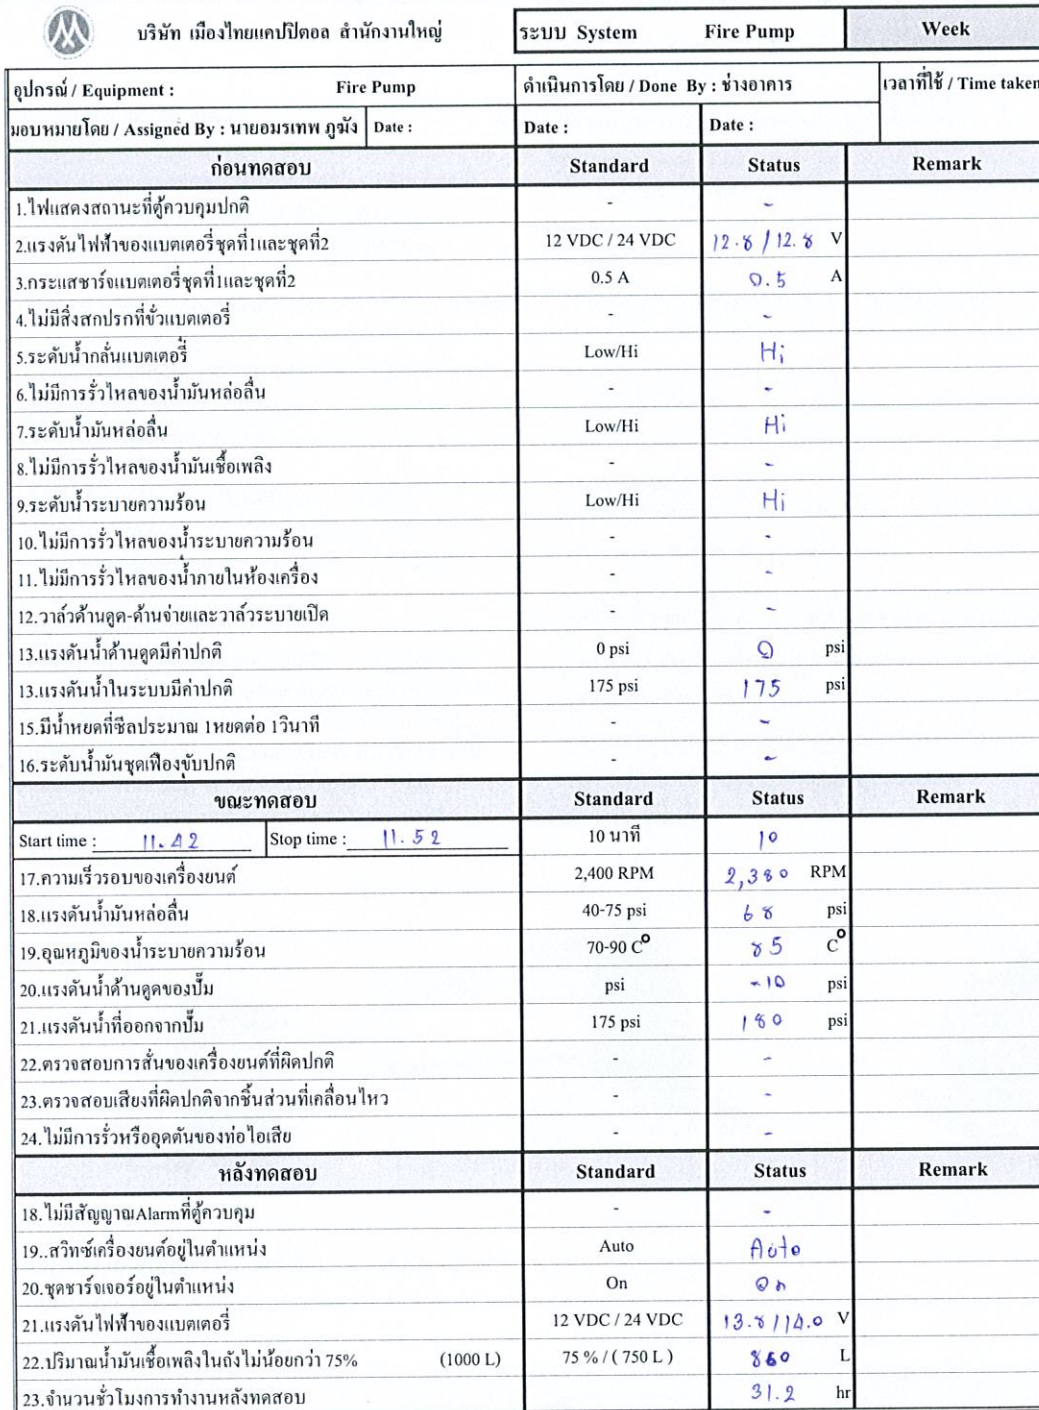 บริษัท เมืองไทยแคปปิตอล สำนักงานใหญ่ ระบบ System Fire Pump Week
อุปกรณ์ / Equipment : Fire Pump ดำเนินการโดย / Done By : ช่างอาคาร เวลาที่ใช้ / Time taken
มอบหมายโดย / Assigned By : นายอมรเทพ ภูฆัง Date : Date : Date :
ก่อนทดสอบ Standard Status Remark
1.ไฟแสดงสถานะที่ตู้ควบคุมปกติ - -
2.แรงดันไฟฟ้าของแบตเตอรี่ชุดที่1และชุดที่2 12 VDC / 24 VDC 12.8 / 12.8 V
3.กระแสชาร์จแบตเตอรี่ชุดที่1และชุดที่2 0.5 A 0.5 A
4.ไม่มีสิ่งสกปรกที่ขั่วแบตเตอรี่ - -
5.ระดับน้ำกลั่นแบตเตอรี่ Low/Hi Hi
6.ไม่มีการรั่วไหลของน้ำมันหล่อลื่น - -
7.ระดับน้ำมันหล่อลื่น Low/Hi Hi
8.ไม่มีการรั่วไหลของน้ำมันเชื้อเพลิง - -
9.ระดับน้ำระบายความร้อน Low/Hi Hi
10.ไม่มีการรั่วไหลของน้ำระบายความร้อน - -
11.ไม่มีการรั่วไหลของน้ำภายในห้องเครื่อง - -
12.วาล์วด้านดูด-ด้านจ่ายและวาล์วระบายเปิด - -
13.แรงดันน้ำด้านดูดมีค่าปกติ 0 psi 0 psi
13.แรงดันน้ำในระบบมีค่าปกติ 175 psi 175 psi
15.มีน้ำหยดที่ซีลประมาณ 1หยดต่อ 1วินาที - -
16.ระดับน้ำมันชุดเฟืองขับปกติ - -
ขณะทดสอบ Standard Status Remark
Start time : 11.42 Stop time : 11.52 10 นาที 10
17.ความเร็วรอบของเครื่องยนต์ 2,400 RPM 2,380 RPM
18.แรงดันน้ำมันหล่อลื่น 40-75 psi 68 psi
19.อุณหภูมิของน้ำระบายความร้อน 70-90 C° 85 C°
20.แรงดันน้ำด้านดูดของปั๊ม psi -10 psi
21.แรงดันน้ำที่ออกจากปั๊ม 175 psi 180 psi
22.ตรวจสอบการสั่นของเครื่องยนต์ที่ผิดปกติ - -
23.ตรวจสอบเสียงที่ผิดปกติจากชิ้นส่วนที่เคลื่อนไหว - -
24.ไม่มีการรั่วหรืออุดตันของท่อไอเสีย - -
หลังทดสอบ Standard Status Remark
18.ไม่มีสัญญาณAlarmที่ตู้ควบคุม - -
19..สวิทซ์เครื่องยนต์อยู่ในตำแหน่ง Auto Auto
20.ชุดชาร์จเจอร์อยู่ในตำแหน่ง On On
21.แรงดันไฟฟ้าของแบตเตอรี่ 12 VDC / 24 VDC 13.8 / 14.0 V
22.ปริมาณน้ำมันเชื้อเพลิงในถังไม่น้อยกว่า 75% (1000 L) 75 % / ( 750 L ) 860 L
23.จำนวนชั่วโมงการทำงานหลังทดสอบ 31.2 hr